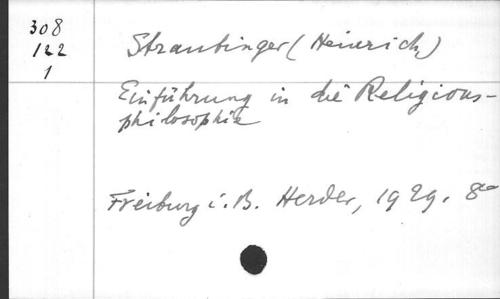 308
122
1
Straubinger (Heinrich)
Einführung in die Religions-
philosophie
Freiburg i. B. Herder, 1929. 8º